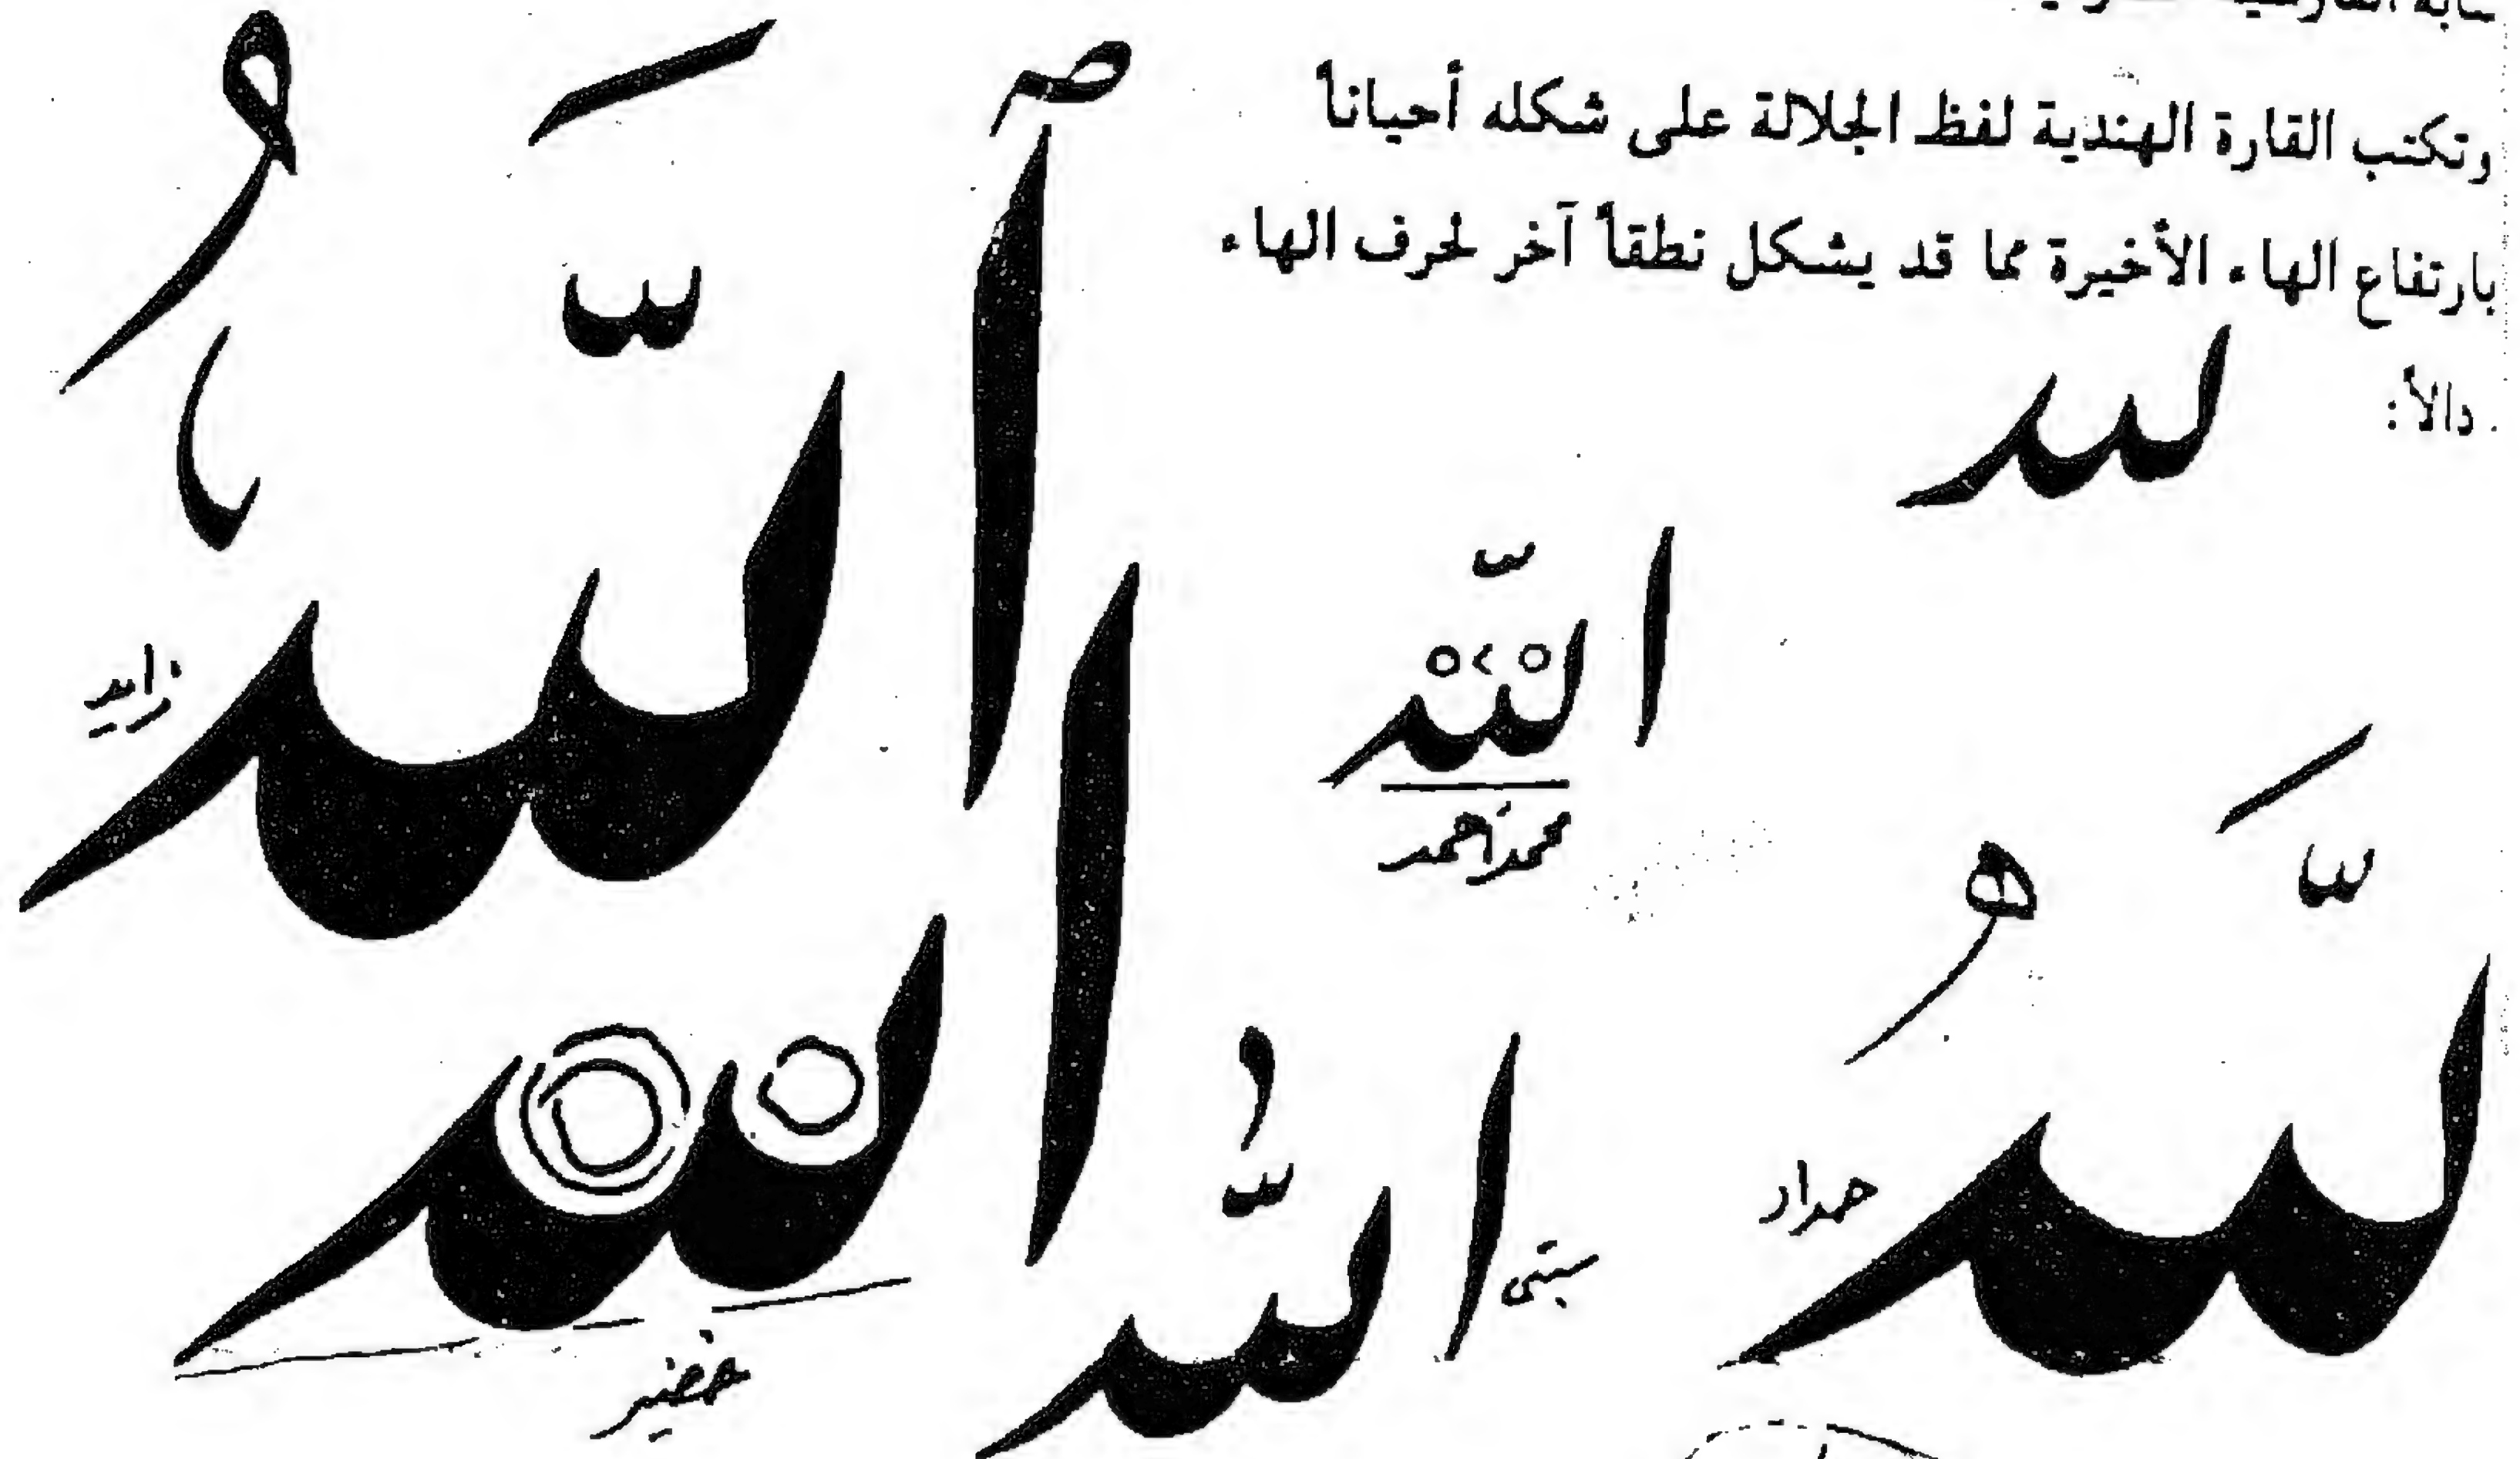 وتكتب القارة الهندية لفظ الجلالة على شكله أحياناً
بارتفاع الهاء الأخيرة مما قد يشكل نطقاً آخر لحرف الهاء
دالاً:
لله
الله
محمد أحمد
الله
زايد
لله
حداد
الله
خضير
الله